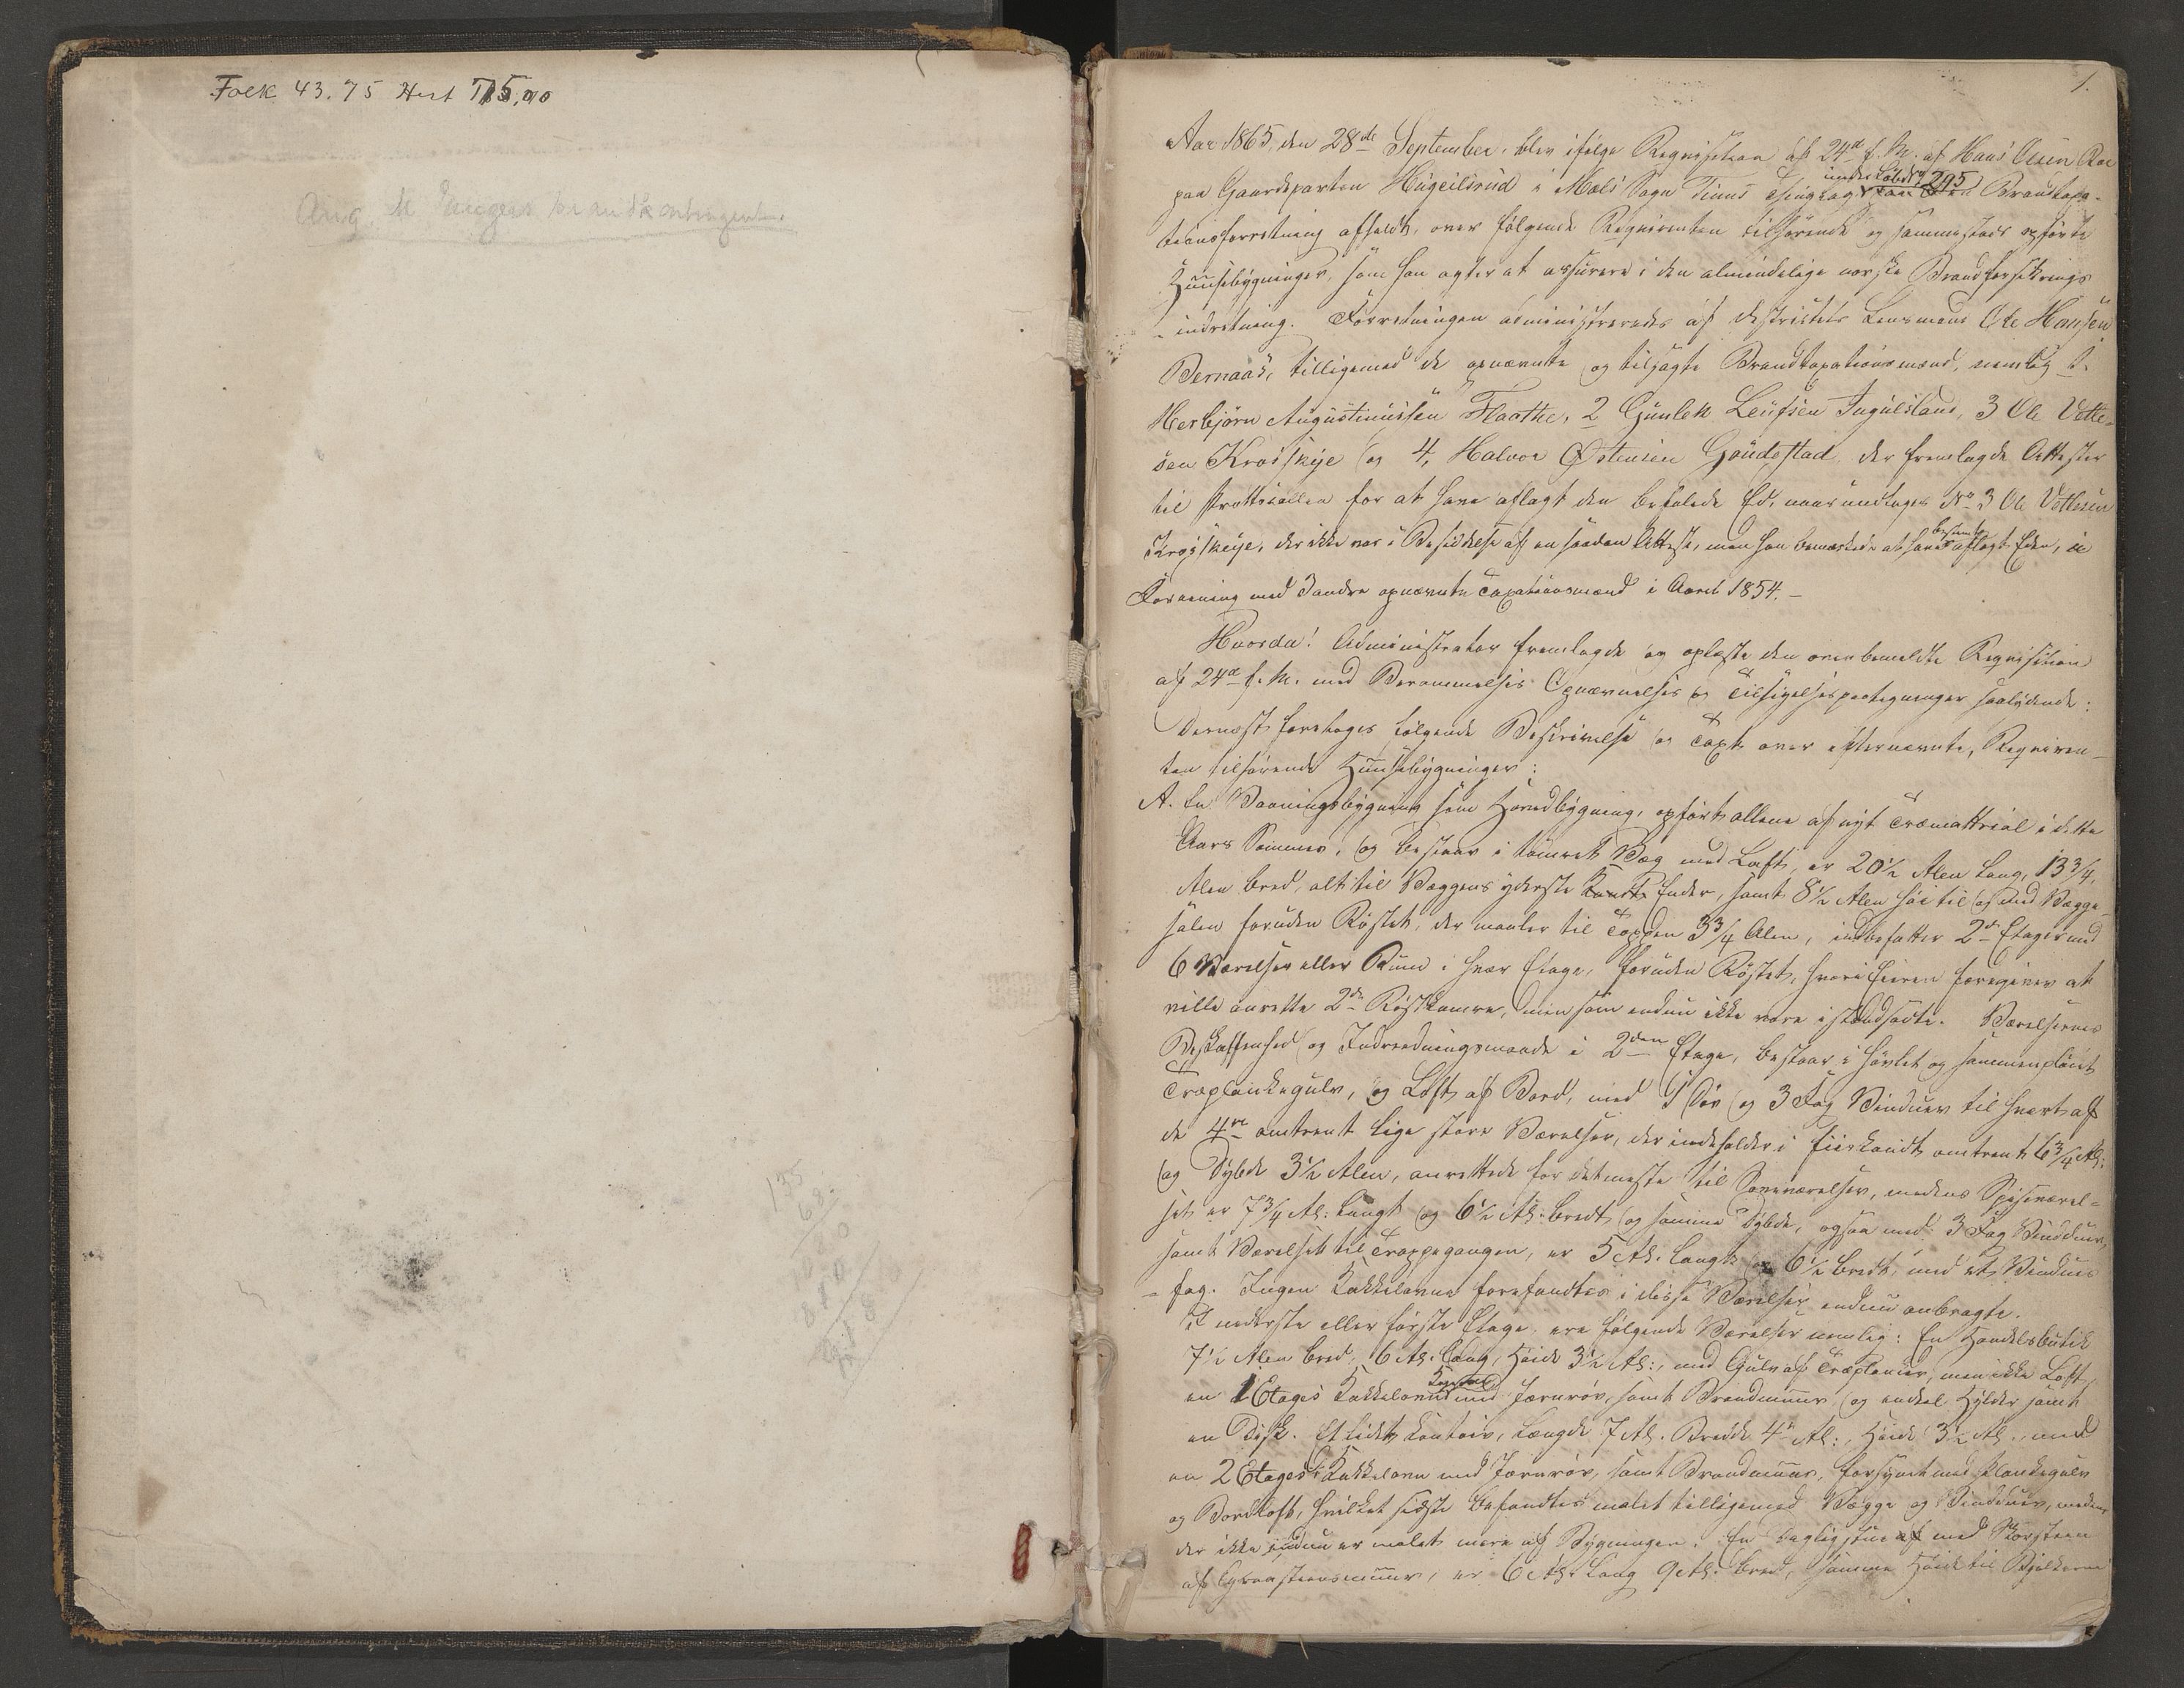 Folk 43.75 Hest 715,00
Ang. M
1.
Aar 1865 den 28de September, blev ifølge Reqvisition af 24de f. M. af Hans Olsen Roe
paa Gaardsparten Hugeilsrud i Mæls Sogn Tinns Thinglag under Løbe No 295 Brandtaxa-
tionsforretning afholdt, over følgende Reqvirenten tilhørende og sammesteds opførte
Huusebygninger, som han agter at assurere i den almindelige norske Brandforsikrings
-indretning. Forretningen administreredes af Distriktets Lensmand Ole Hansen
Bernaas, tilligemed de opnævnte og tilsagte Brandtaxationsmænd, nemlig 1.
Herbjørn Augustinussen Flaathe, 2 Gunlek Leufsen Ingulsland, 3 Ole Vetle-
sen Krosskeje og 4, Halvor Østensen Gøudestad der fremlagde Attester
til Protokollen for at have aflagt den befalede Ed, naar undtages No 3 Ole Vetlesen
Krosskeje, der ikke var i Besiddelse af en saadan Attest, men han bemærkede at have aflagt Eden, i
Forening med 3 andre opnævnte Taxationsmænd i Aaret 1854.-
Hvorda! Administrator fremlagde og oplæste den ovenbemeldte Reqvisition
af 24de f. M. med Berammelses Opnævnelses og Tilsigelsespaategninger saalydende:
Dernæst foretoges følgende Beskrivelse og Taxt over efternævnte, Reqviren-
ten tilhørende Huusebygninger:
A. En Vaaningsbygning som Hovedbygning, opført allene af nyt Træmattrial i dette
Aars Sommer, og bestaar i tømret Væg med Loft, er 20½ Alen Lang, 13¾,
Alen bred, alt til Væggens yderste Kandt Ender, samt 8½ Alen høi til og med Vægge-
salen foruden Røstet, der maaler til Toppen 3¾ Alen, indbefatter 2de Etager med
6 Værelser eller Rum i hver Etage, foruden Røstet, hvori Eieren foregiver at
ville anrette 2de Røstkamre, men som endnu ikke vare istandsatte. Værelsernes
Beskaffenhed og Indreedningsmaade i 2den Etage, bestaar i høvlet og sammenpløiet
Træplankegulv, og Loft af Bord, med 1 Dør og 3 Fag Vinduer til hvert af
de 4re omtrent lige store Værelser, der indeholder i Fiirkandt omtrent 6¾ Al:
og Dybde 3½ Alen, anrettede for detmeste til Soveværelser, medens Spiseværel-
set er 7¾ Al: langt og 6½ Al: bredt og samme Dybde, ogsaa med 3 Fag Vinduer,
samt Værelset til Trappegangen, er 5 Al. langt og 6½ bredt, med et Vindue
-fag. Ingen Kakkelovne forefandtes i disse Værelser endnu anbragte.
I nederste eller første Etage, ere følgende Værelser nemlig: En Handelsbutik
7½ Alen bred, 6 Al. lang, Høide 3½ Al:, med Gulv af Træplanker, men ikke Loft,
en 1 Etages Kakkelovn med Jernrør, samt Brandmuur og endeel Hylder samt
en Disk. Et lidet Kontoir, Længde 7 Al. Bredde 4 Al:, Høide 3½ Al., med
en 2 Etages Kakkelovn med Jernrør, samt Brandmuur, forsynet med Plankegulv
og Bordloft, hvilket sidste befandtes malet tilligemed Vægge og Vinduer, medens
der ikke endnu er malet mere af Bygningen. En Dagligstue med Skorsteen
af Graasteensmuur, er 6 Al. Lang 9 Al. bred, samme Høide til Bjelkerne